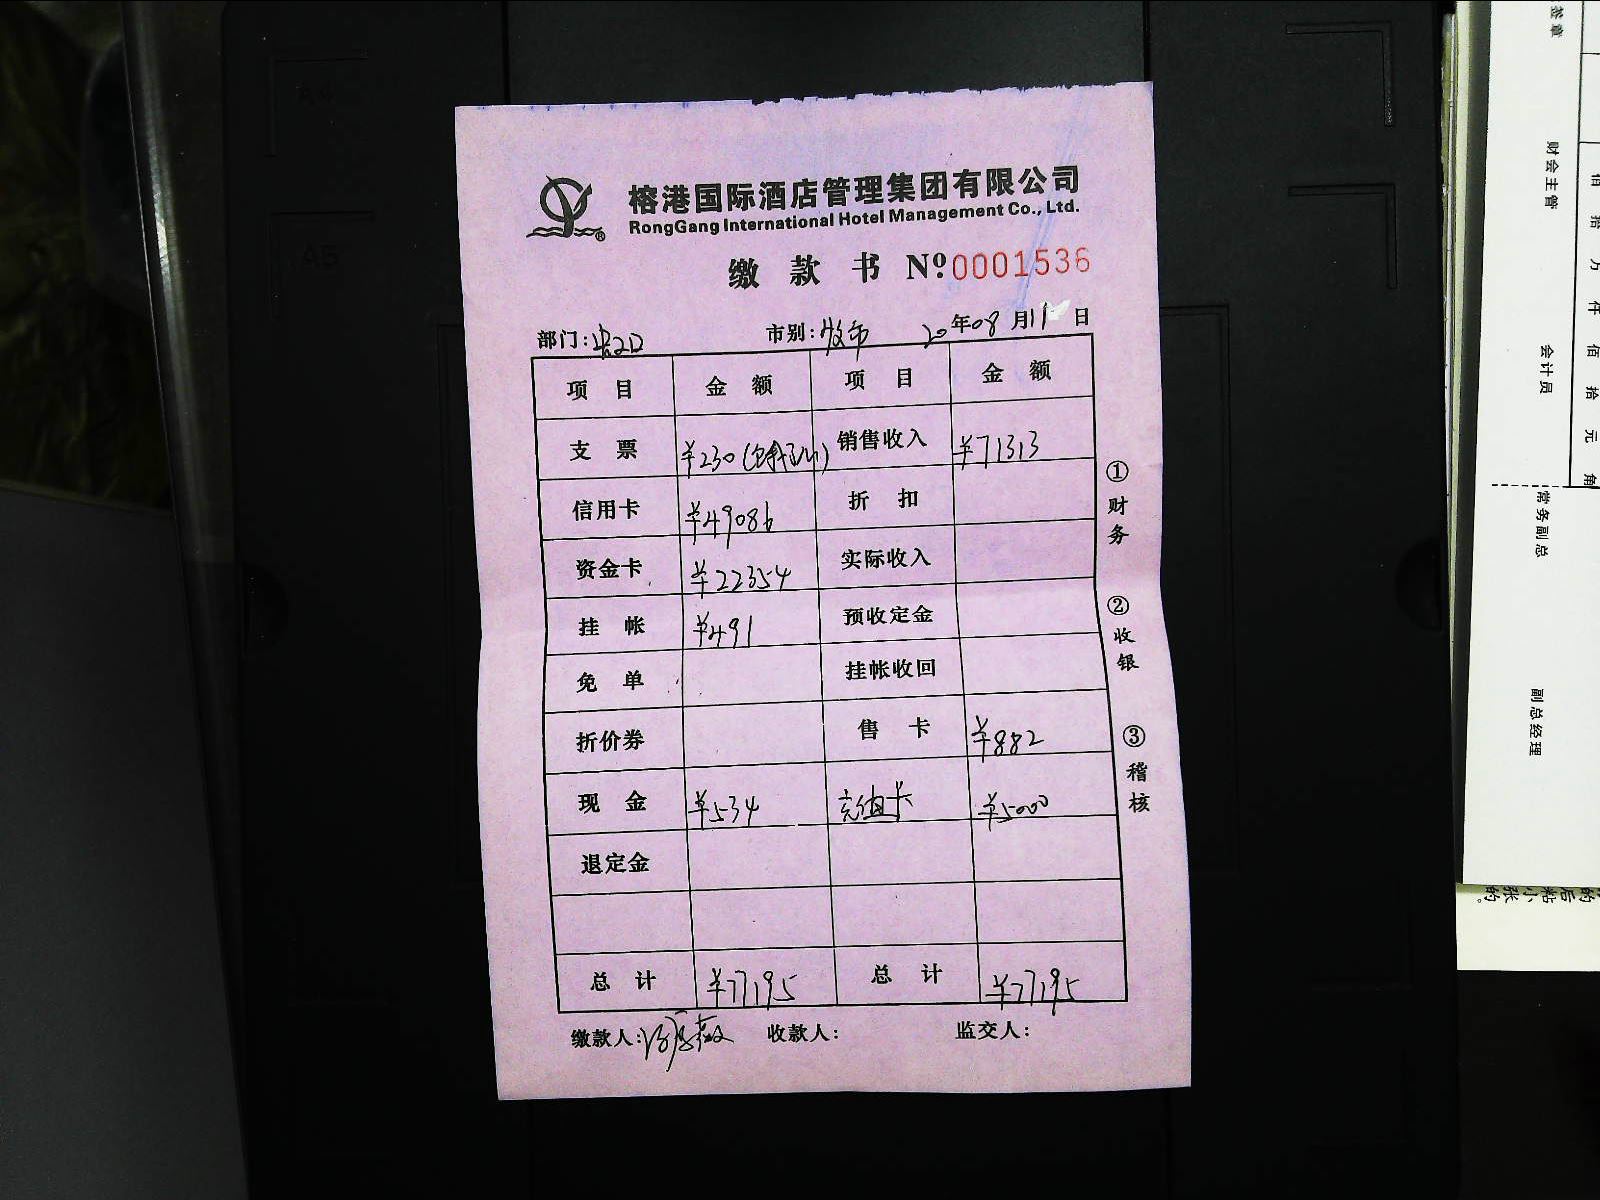 榕港国际酒店管理集团有限公司
RongGang International Hotel Management Co., Ltd.
缴 款 书 Nº 0001536
部门: 市别: 20年08月11日
项 目 金 额 项 目 金 额
支 票 ¥230 销售收入 ¥71313
信用卡 ¥49086 折 扣
资金卡 ¥22354 实际收入
挂 帐 ¥491 预收定金
免 单 挂帐收回
折价券 售 卡 ¥882
现 金 ¥534 充值卡 ¥5000
退定金
总 计 ¥77195 总 计 ¥77195
缴款人: 收款人: 监交人:
①财务
②收银
③稽核
A4
A5
签章
财会主管
会计员
常务副总
副总经理
佰拾万仟佰拾元角